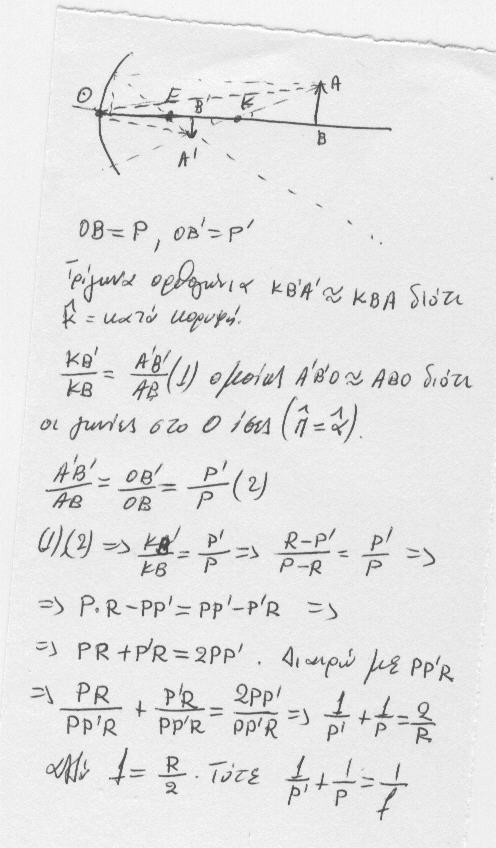 O E B' K A
B
A'
OB = P, OB' = P'
Τρίγωνα ορθογώνια KB'A' ≈ KBA διότι
K̂ = κατά κορυφή.
KB'/KB = A'B'/AB (1) ομοίως A'B'O ≈ ABO διότι
οι γωνίες στο O ίσες (π̂ = α̂).
A'B'/AB = OB'/OB = P'/P (2)
(1)(2) => KB'/KB = P'/P => R-P'/P-R = P'/P =>
=> P·R - PP' = PP' - P'R =>
=> PR + P'R = 2PP'. Διαιρώ με PP'R
=> PR/PP'R + P'R/PP'R = 2PP'/PP'R => 1/P' + 1/P = 2/R
αλλά f = R/2. Τότε 1/P' + 1/P = 1/f